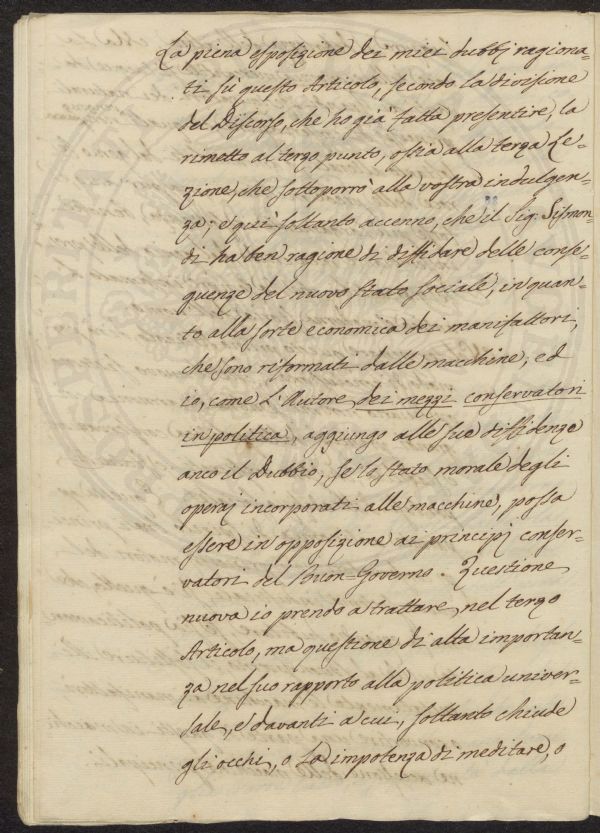 La piena esposizione dei miei dubbj ragiona=
ti su questo Articolo, secondo la divisione
del Discorso, che ho già fatta presentire, la
rimetto al terzo punto, ossia alla terza Le=
zione, che sottoporrò alla vostra indulgen=
za; e quì soltanto accenno, che il Sig. Sismon=
di ha ben ragione di diffidare delle conse=
guenze del nuovo stato sociale, in quan=
to alla sorte economica dei manifattori,
che sono riformati dalle macchine; ed
io, come l'Autore dei mezzi conservatori
in politica, aggiungo alle sue diffidenze
anco il Dubbio, se lo stato morale degli
operaj incorporati alle macchine, possa
essere in opposizione ai principj conser=
vatori del Buon=Governo. Questione
nuova io prendo a trattare nel terzo
Articolo, ma questione di alta importan=
za nel suo rapporto alla politica univer=
sale, e davanti a cui, soltanto chiude
gli occhi, o la impotenza di meditare, o